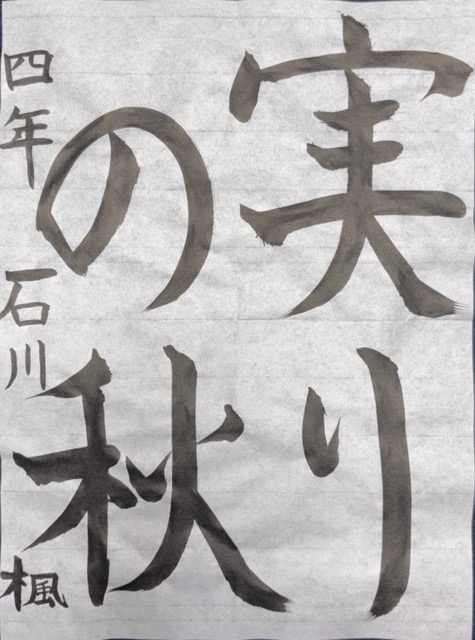 実り
の秋
四年 石川 楓